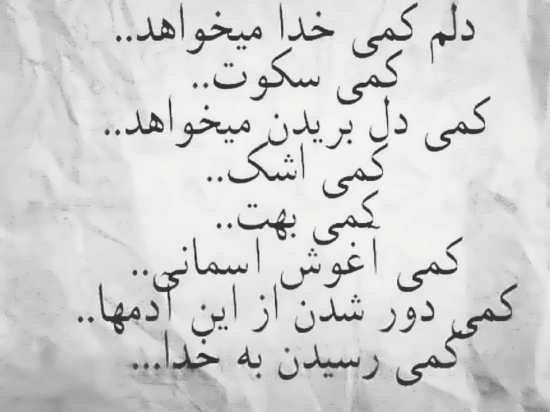 دلم کمی خدا میخواهد..
کمی سکوت..
کمی دل بریدن میخواهد..
کمی اشک..
کمی بهت..
کمی آغوش اسمانی..
کمی دور شدن از این آدمها..
کمی رسیدن به خدا...